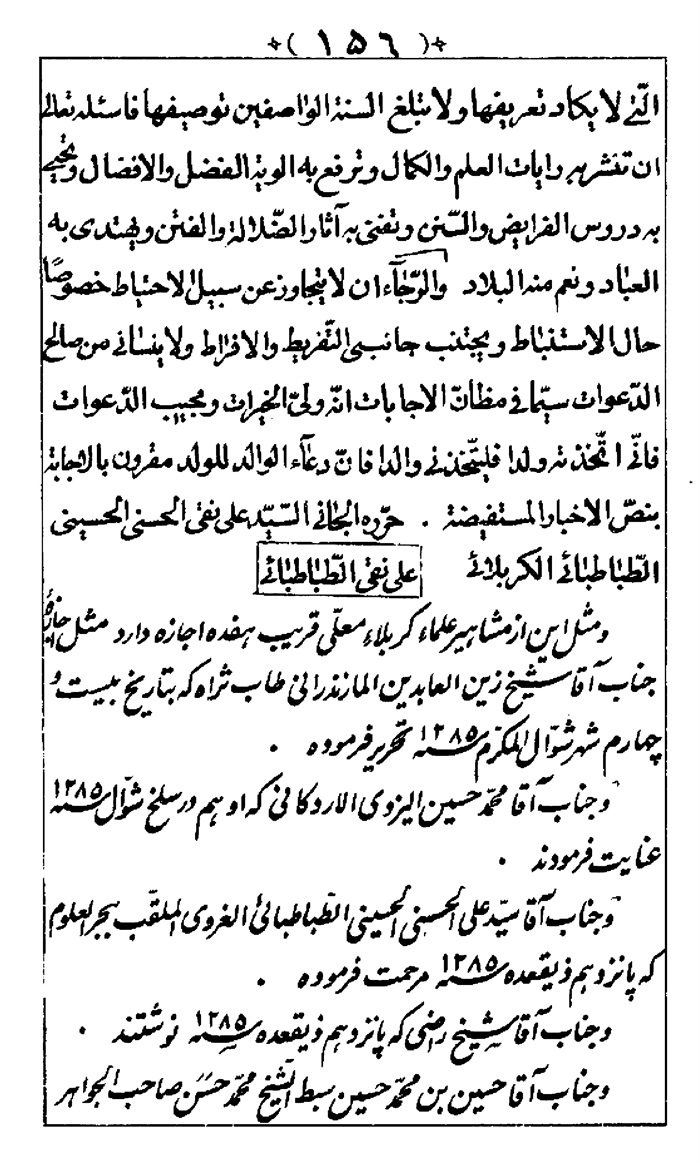 (۱۵۶)
الّتي لا يكاد تعريفها ولا تبلغ السنة الواصفين توصيفها فاسئله تعالى
ان تنشر به رايات العلم والكمال وترفع به الوية الفضل والافضال ويحيى
به دروس الفرايض والسّنن وتفنى به آثار الضّلالة والفتن ويهتدى به
العباد ونعم منه البلاد والرّجآء ان لا يتجاوز عن سبيل الاحتياط خصوصًا
حال الاستنباط ويجتنب جانبى التّفريط والافراط ولا ينسانى من صالح
الدّعوات سيّما في مظانّ الاجابات انّه ولىّ الخيرات ومجيب الدّعوات
فانّى اتّخذته ولدا فليتّخذنى والدا فانّ دعآء الوالد للولد مقرون بالاجابة
بنصّ الاخبار المستفيضة . حرّره الجانى السّيّد على نقى الحسنى الحسينى
الطّباطبائى الكربلائى على نقى الطّباطبائى
ومثل این از مشاهیر علماء کربلاء معلّی قریب هفده اجازه دارد مثل اجازهٔ
جناب آقا شیخ زین العابدین المازندرانی طاب ثراه که بتاریخ بیست و
چهارم شهر شوّال المکرّم سنه ۱۲۸۵ تحریر فرموده .
وجناب آقا محمّد حسین الیزدی الاردکانی که او هم در سلخ شوّال سنه ۱۲۸۵
عنایت فرمودند .
وجناب آقا سیّد علی الحسنی الحسینی الطّباطبائی الغروی الملقّب ببحر العلوم
که پانزدهم ذیقعده سنه ۱۲۸۵ مرحمت فرموده .
وجناب آقا شیخ راضی که پانزدهم ذیقعده سنه ۱۲۸۵ نوشتند .
وجناب آقا حسین بن محمّد حسین سبط الشّیخ محمّد حسن صاحب الجواهر